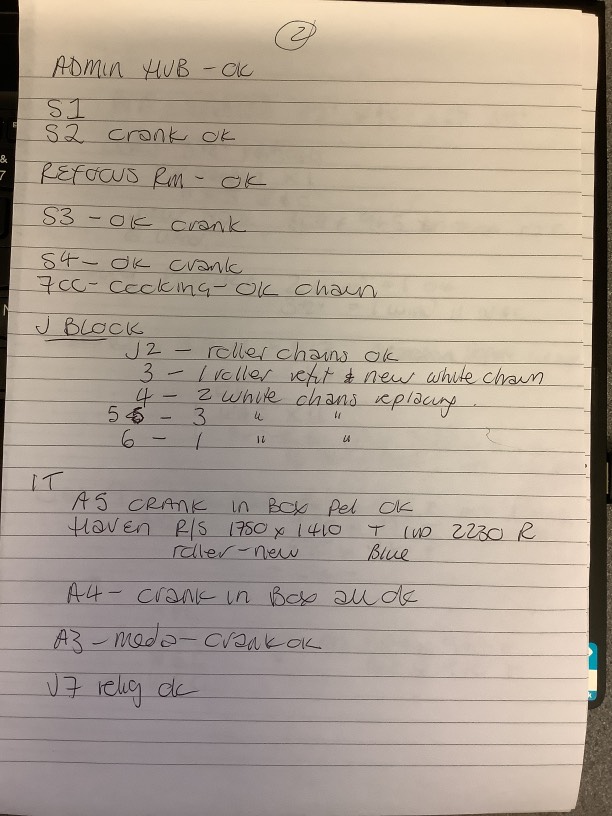 2
ADMIN HUB - OK
S1
S2 crank ok
REFOCUS RM - OK
S3 - OK crank
S4 - OK crank
7CC - cooking - OK chain
J BLOCK
J2 - roller chains ok
3 - 1 roller refit & new white chain
4 - 2 white chans replacing.
5 - 3 " "
6 - 1 " "
IT
A5 CRANK in BOX Pel OK
Haven R/S 1750 x 1410 T 2230 R
roller - new Blue
A4 - crank in Box all ok
A3 - meda - crank ok
J7 relig ok